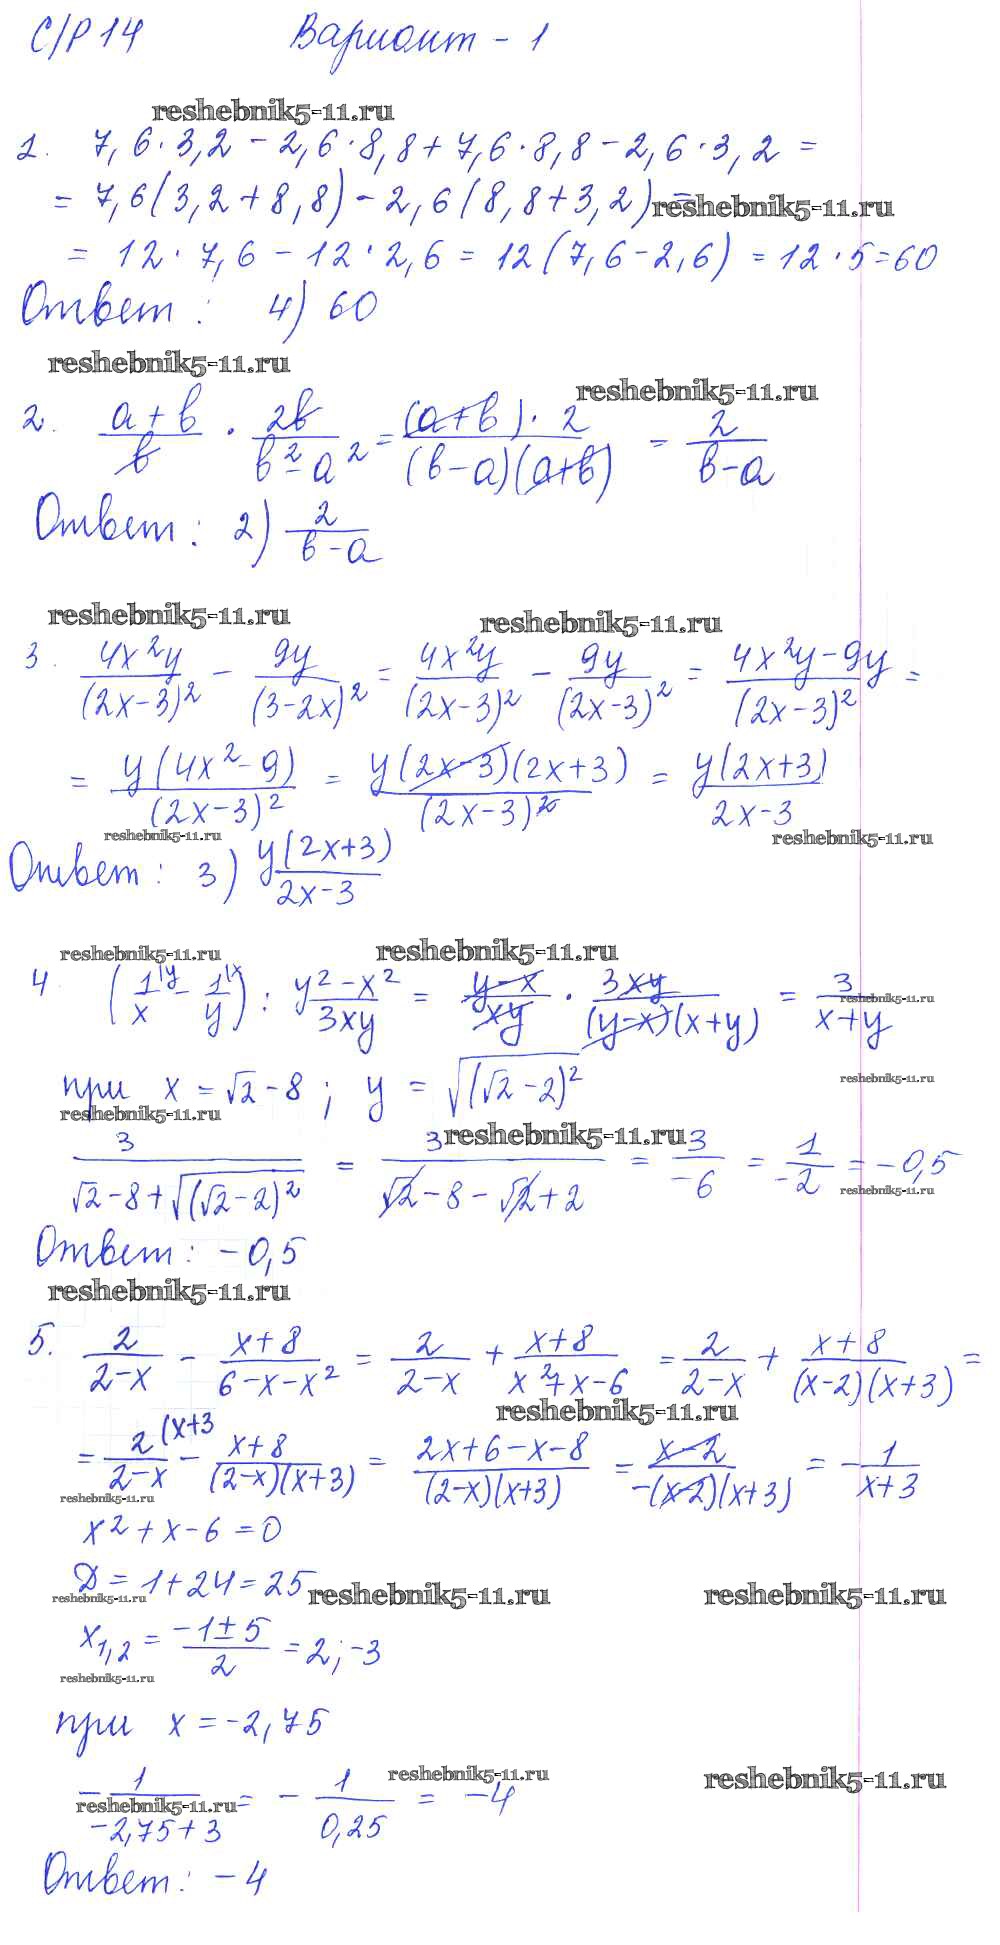 С/Р 14 Вариант - 1
reshebnik5-11.ru
1. 7,6·3,2 - 2,6·8,8 + 7,6·8,8 - 2,6·3,2 =
= 7,6(3,2+8,8) - 2,6(8,8+3,2) = reshebnik5-11.ru
= 12·7,6 - 12·2,6 = 12(7,6-2,6) = 12·5 = 60
Ответ: 4) 60
reshebnik5-11.ru
reshebnik5-11.ru
2. (a+b)/b · 2b/(b²-a²) = ((a+b)·2)/((b-a)(a+b)) = 2/(b-a)
Ответ: 2) 2/(b-a)
reshebnik5-11.ru
reshebnik5-11.ru
3. 4x²y/(2x-3)² - 9y/(3-2x)² = 4x²y/(2x-3)² - 9y/(2x-3)² = (4x²y-9y)/(2x-3)² =
= y(4x²-9)/(2x-3)² = y(2x-3)(2x+3)/(2x-3)² = y(2x+3)/(2x-3)
reshebnik5-11.ru reshebnik5-11.ru
Ответ: 3) y(2x+3)/(2x-3)
reshebnik5-11.ru reshebnik5-11.ru
4. (1/x |y - 1/y |x) : (y²-x²)/3xy = (y-x)/xy · 3xy/((y-x)(x+y)) = 3/(x+y)
reshebnik5-11.ru
при x = √2-8 ; y = √(√2-2)²
reshebnik5-11.ru
reshebnik5-11.ru
reshebnik5-11.ru
3/(√2-8+√(√2-2)²) = 3/(√2-8-√2+2) = 3/-6 = 1/-2 = -0,5
reshebnik5-11.ru
Ответ: -0,5
reshebnik5-11.ru
5. 2/(2-x) - (x+8)/(6-x-x²) = 2/(2-x) + (x+8)/(x²+x-6) = 2/(2-x) + (x+8)/((x-2)(x+3)) =
reshebnik5-11.ru
= 2/(2-x) (x+3 - (x+8)/((2-x)(x+3)) = (2x+6-x-8)/((2-x)(x+3)) = (x-2)/(-(x-2)(x+3)) = -1/(x+3)
reshebnik5-11.ru
x²+x-6=0
Д=1+24=25
reshebnik5-11.ru reshebnik5-11.ru reshebnik5-11.ru
x₁,₂ = (-1±5)/2 = 2;-3
reshebnik5-11.ru
при x=-2,75
reshebnik5-11.ru reshebnik5-11.ru
- 1/(-2,75+3) = - 1/0,25 = -4
reshebnik5-11.ru
Ответ: -4